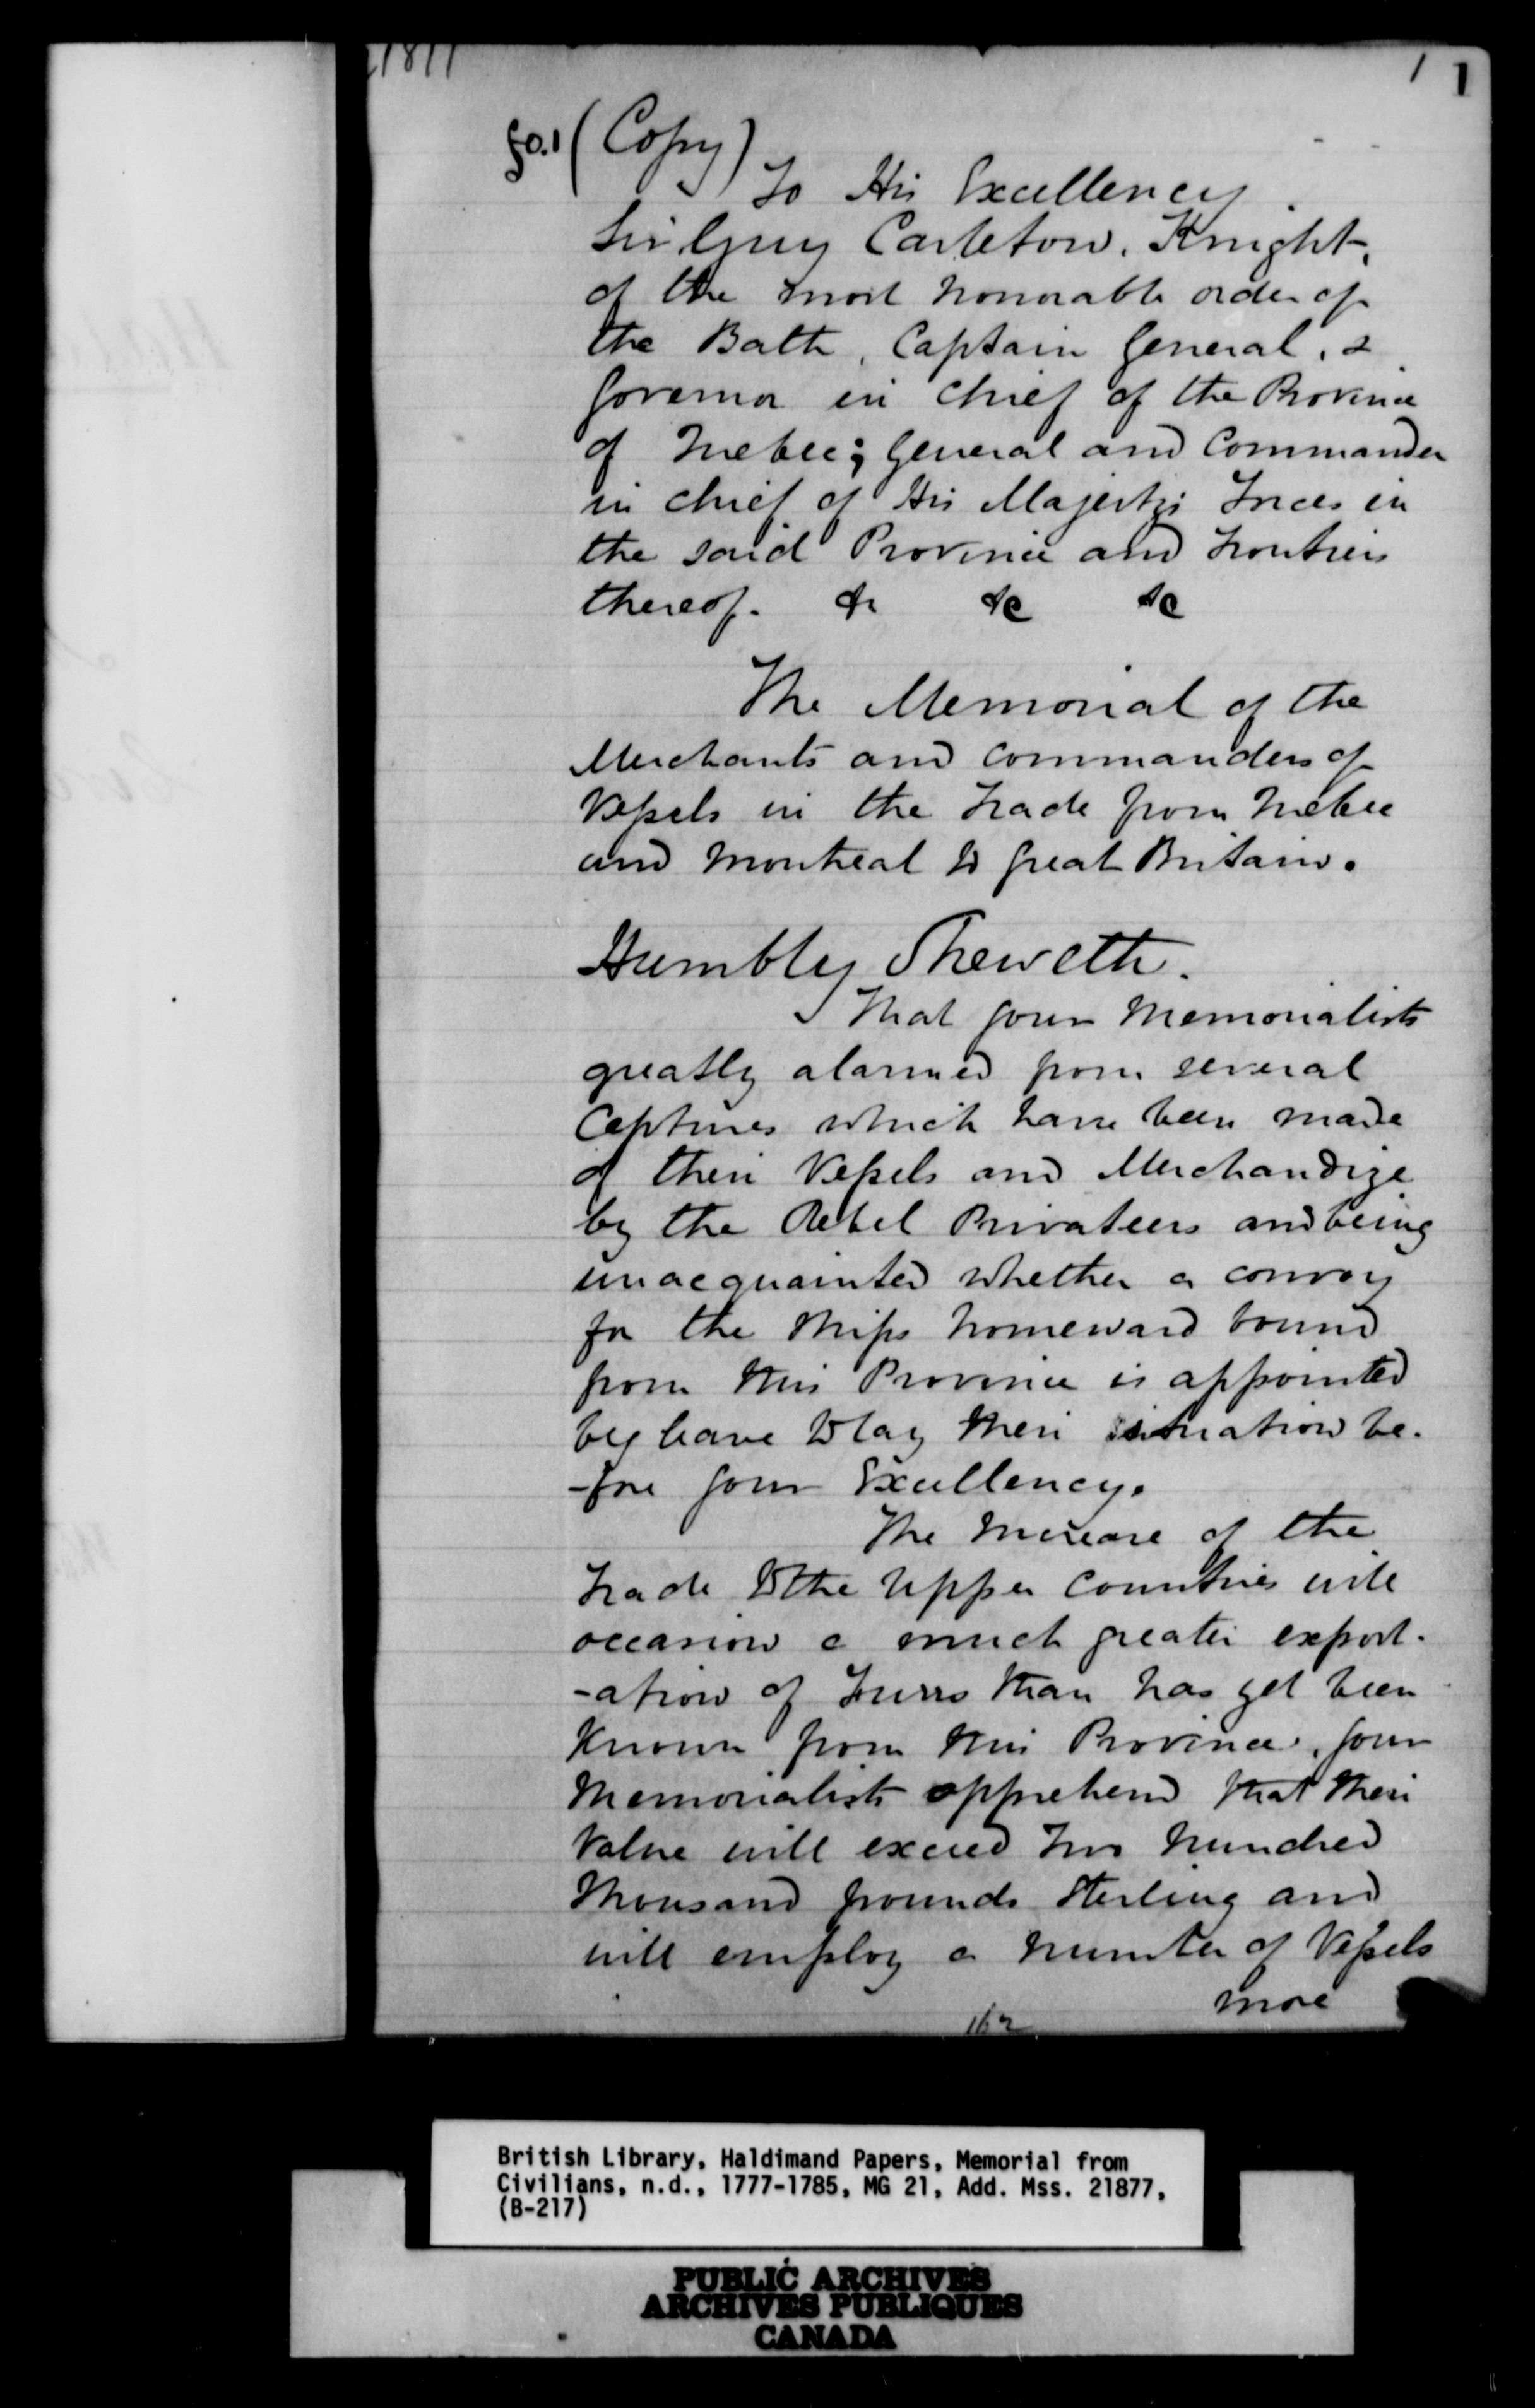 1 1
fo.1 (Copy)
To His Excellency
Sir Guy Carleton, Knight,
of the most honorable order of
the Bath, Captain General, &
Governor in chief of the Province
of Quebec; General and Commander
in chief of His Majesty's Forces in
the said Province and Frontiers
thereof. &c &c &c
The Memorial of the
Merchants and Commanders of
Vessels in the Trade from Quebec
and Montreal to Great Britain.
Humbly Sheweth.
That your Memorialists
greatly alarmed from several
Captures which have been made
of their Vessels and Merchandize
by the Rebel Privateers and being
unacquainted whether a convoy
for the Ships homeward bound
from this Province is appointed
beg leave to lay their situation be-
-fore your Excellency.
The Increase of the
Trade to the Upper Countries will
occasion a much greater export-
-ation of Furrs than has yet been
known from this Province, your
Memorialists apprehend that their
Value will exceed Two hundred
Thousand pounds Sterling and
will employ a number of Vessels
more
British Library, Haldimand Papers, Memorial from
Civilians, n.d., 1777-1785, MG 21, Add. Mss. 21877,
(B-217)
PUBLIC ARCHIVES
ARCHIVES PUBLIQUES
CANADA